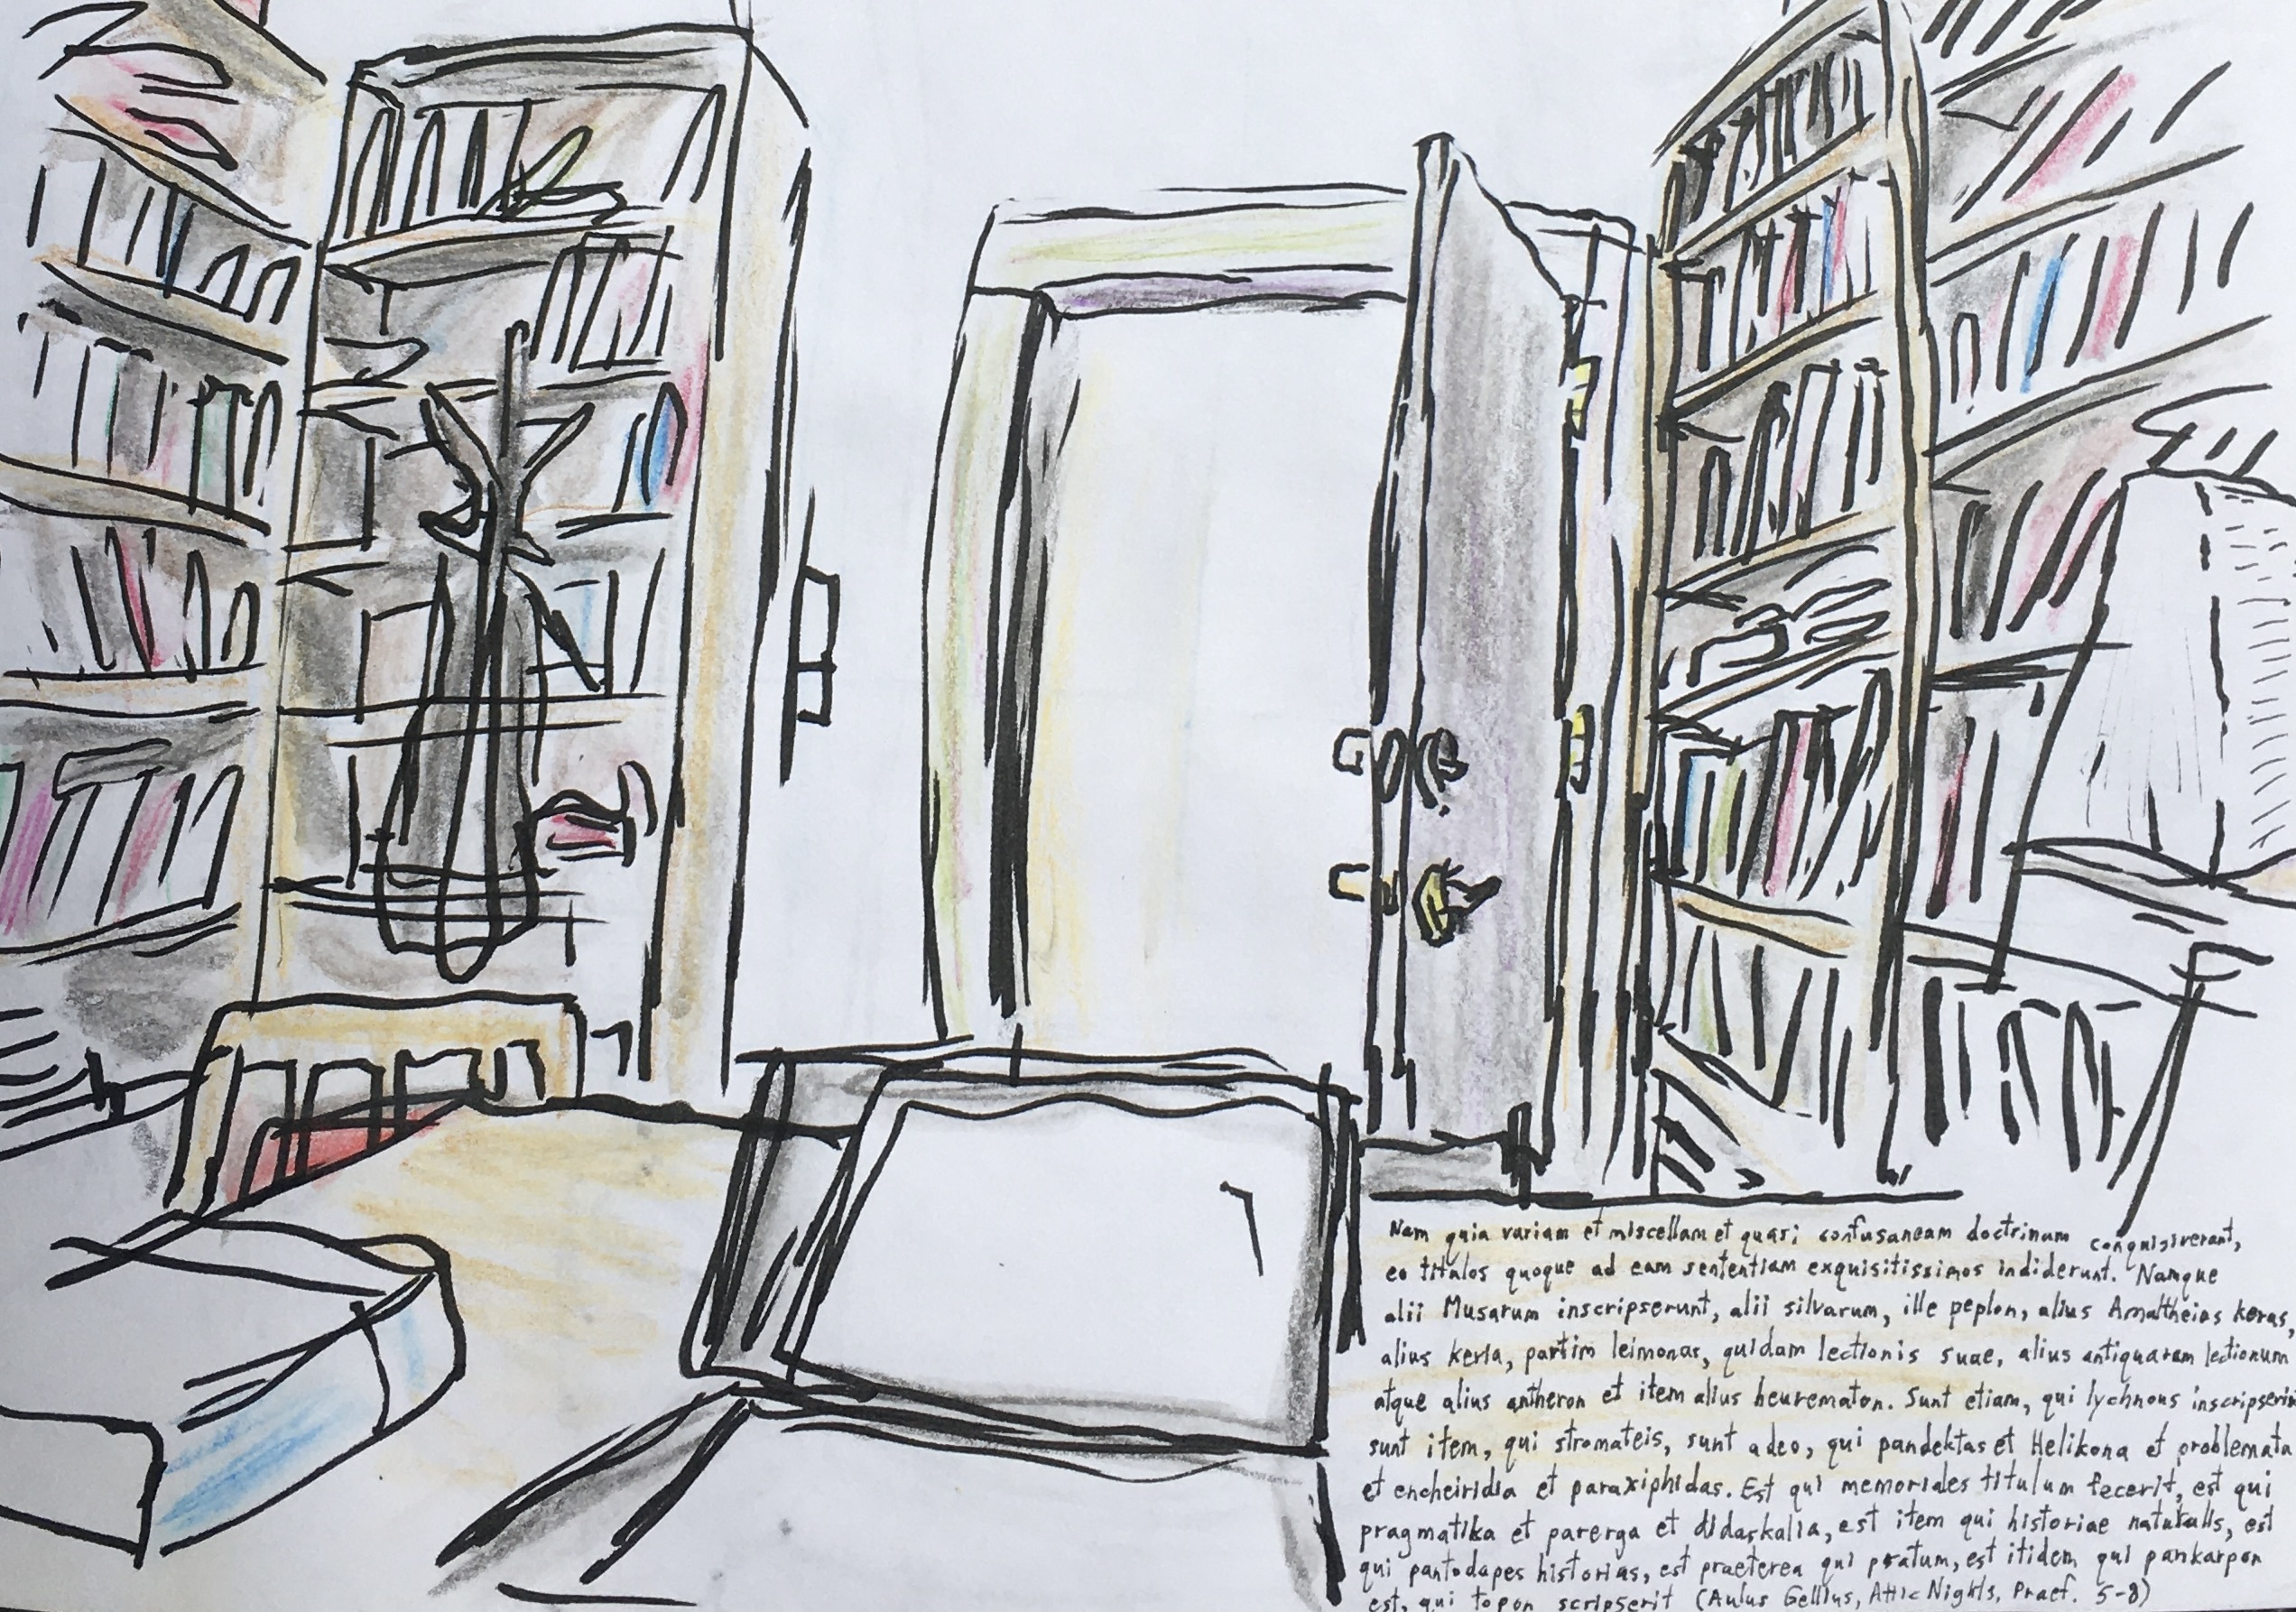 Nam quia variam et miscellam et quasi confusaneam doctrinam conquisiverant,
eo titulos quoque ad eam sententiam exquisitissimos indiderunt. Namque
alii Musarum inscripserunt, alii silvarum, ille peplon, alius Amaltheias keras,
alius keria, partim leimonas, quidam lectionis suae, alius antiquarum lectionum
atque alius antheron et item alius heurematon. Sunt etiam, qui lychnous inscripserin
sunt item, qui stromateis, sunt adeo, qui pandektas et Helikona et problemata
et encheiridia et paraxiphidas. Est qui memoriales titulum fecerit, est qui
pragmatika et parerga et didaskalia, est item qui historiae naturalis, est
qui pantodapes historias, est praeterea qui pratum, est itidem qui pankarpon
est, qui topon scripserit (Aulus Gellius, Attic Nights, Praef. 5-8)